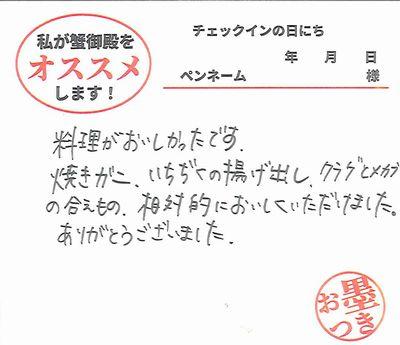 私が蟹御殿を
オススメ
します！
チェックインの日にち
年 月 日
ペンネーム 様
料理がおいしかったです.
焼きガニ、いちぢくの揚げ出し、クラゲとメカブ
の合えもの、相対的においしくいただけました。
ありがとうございました.
お墨つき